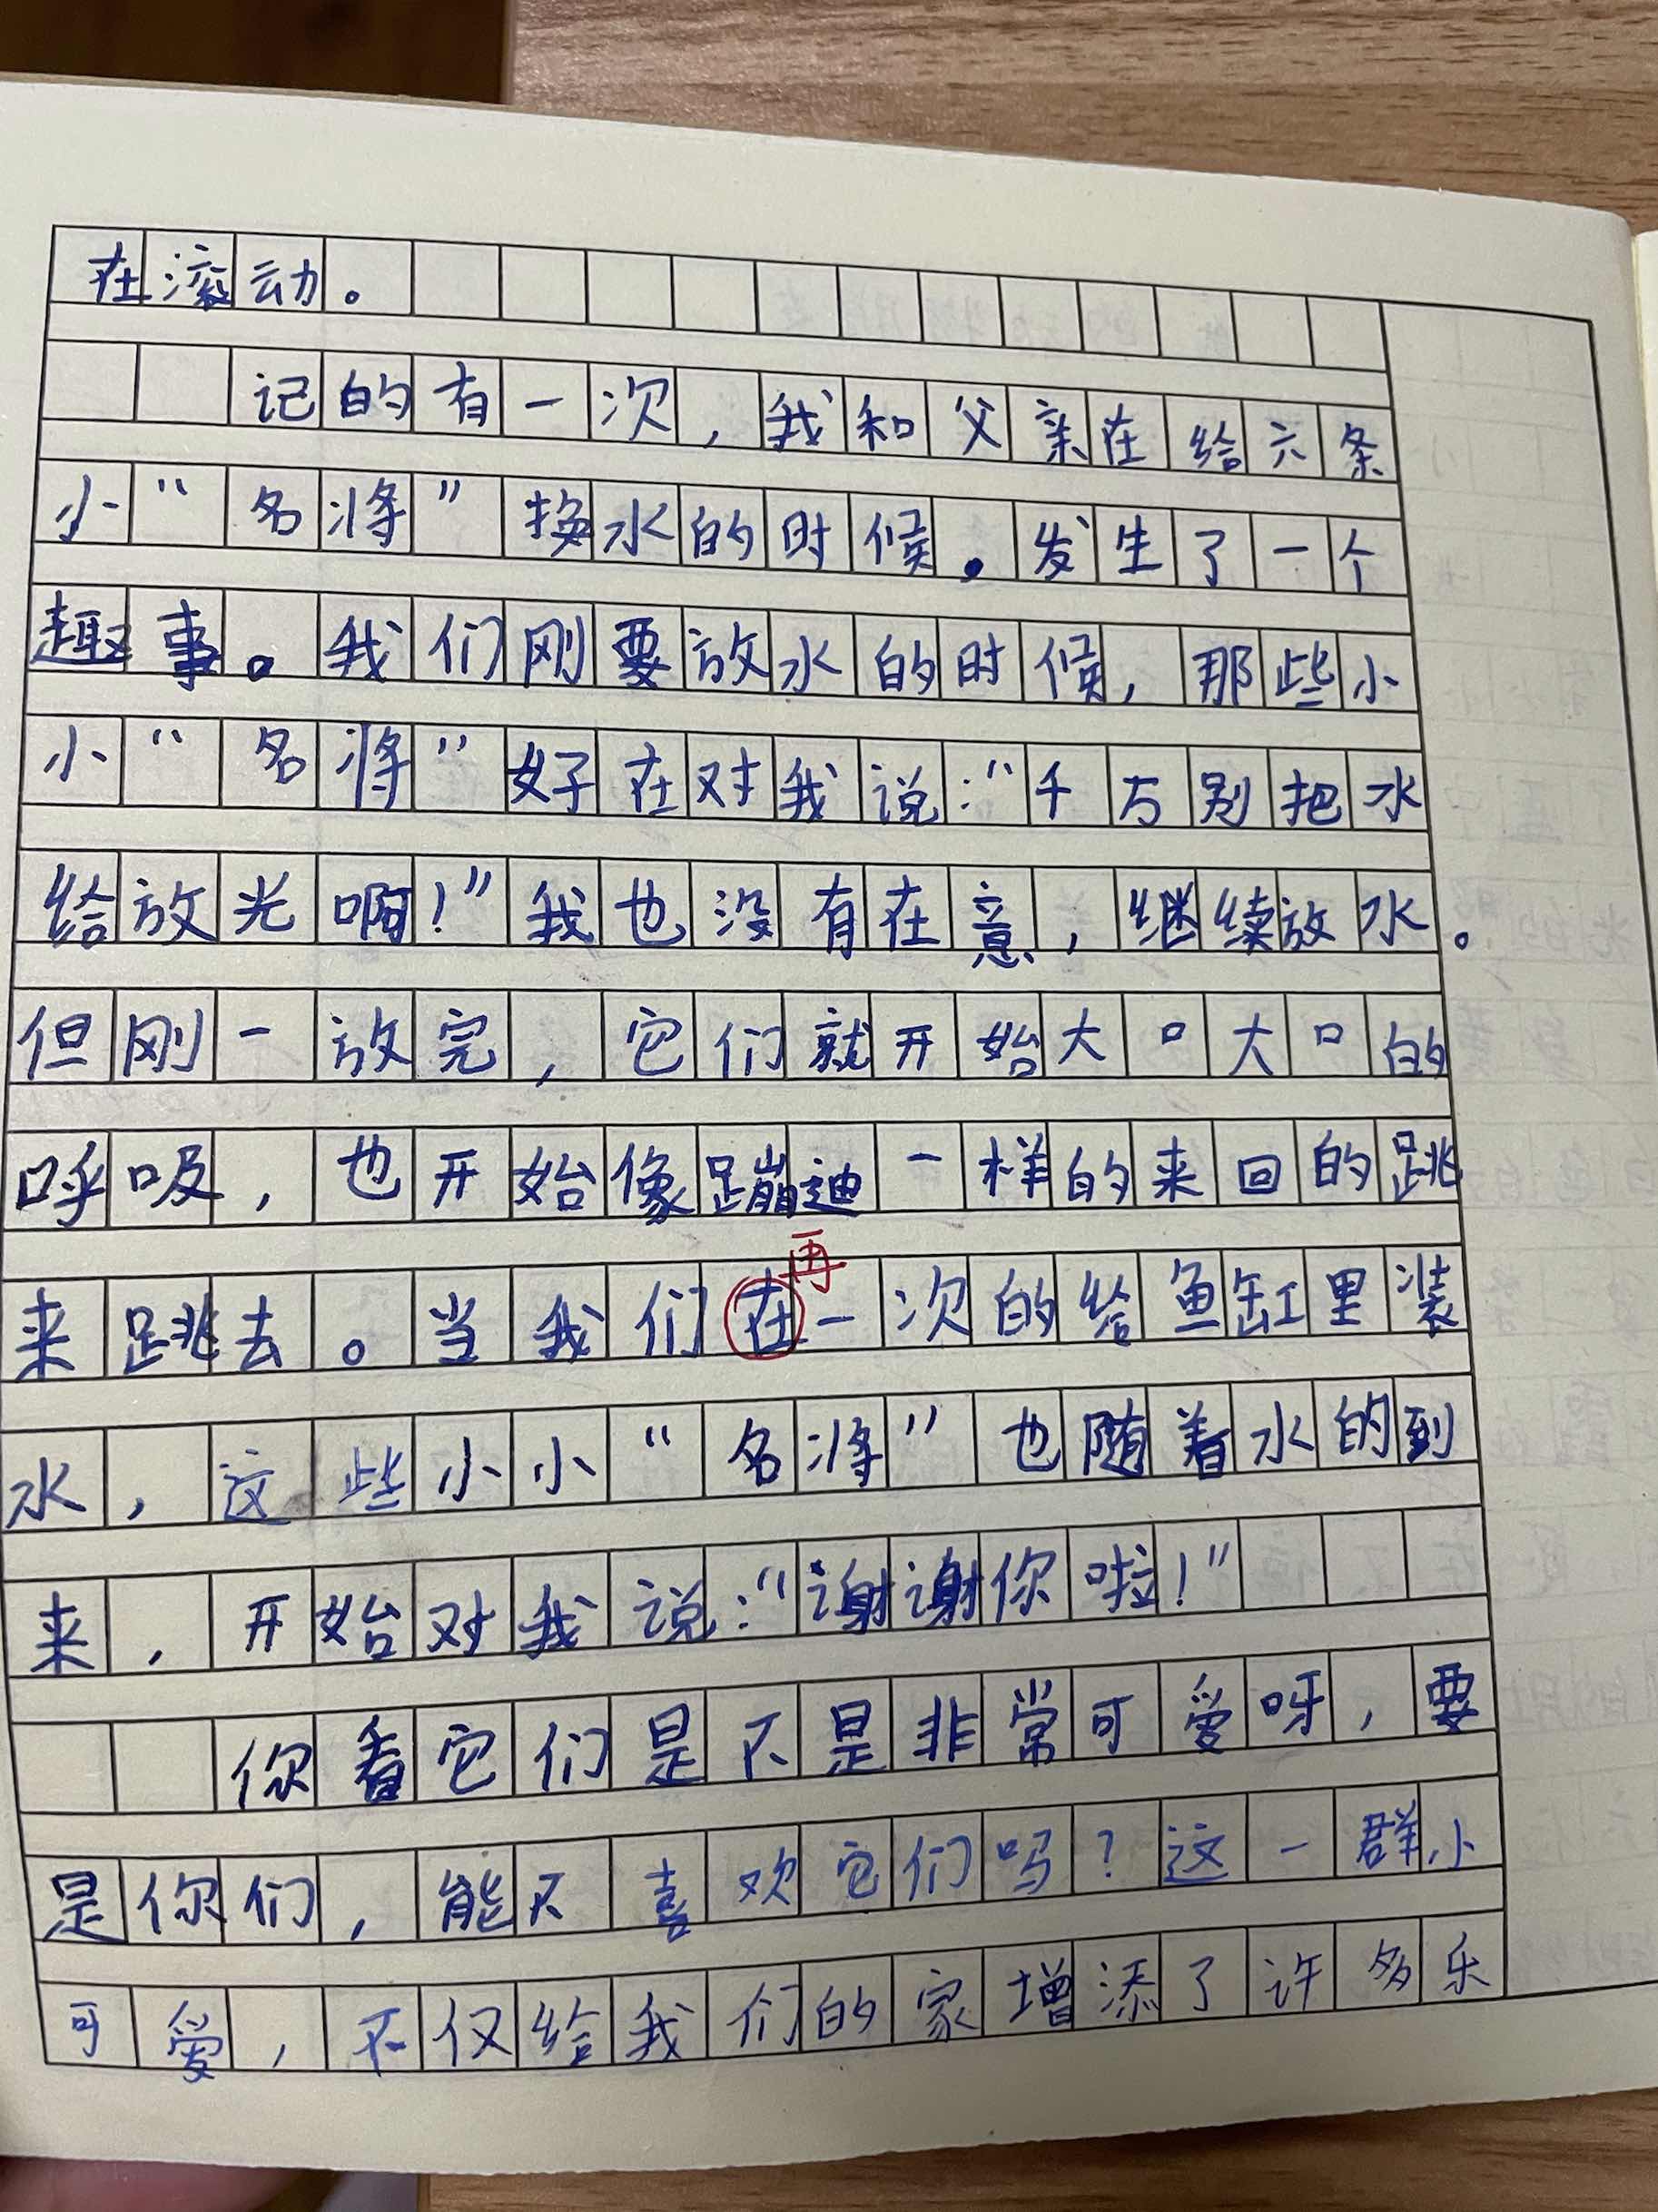 在滚动。
记的有一次，我和父亲在给六条
小“名将”换水的时候。发生了一个
趣事。我们刚要放水的时候，那些小
小“名将”好在对我说：“千万别把水
给放光啊！”我也没有在意，继续放水。
但刚一放完，它们就开始大口大口的
呼吸，也开始像蹦迪一样的来回的跳
再
来跳去。当我们在一次的给鱼缸里装
水，这些小小“名将”也随着水的到
来，开始对我说：“谢谢你啦！”
你看它们是不是非常可爱呀，要
是你们，能不喜欢它们吗？这一群小
可爱，不仅给我们的家增添了许多乐